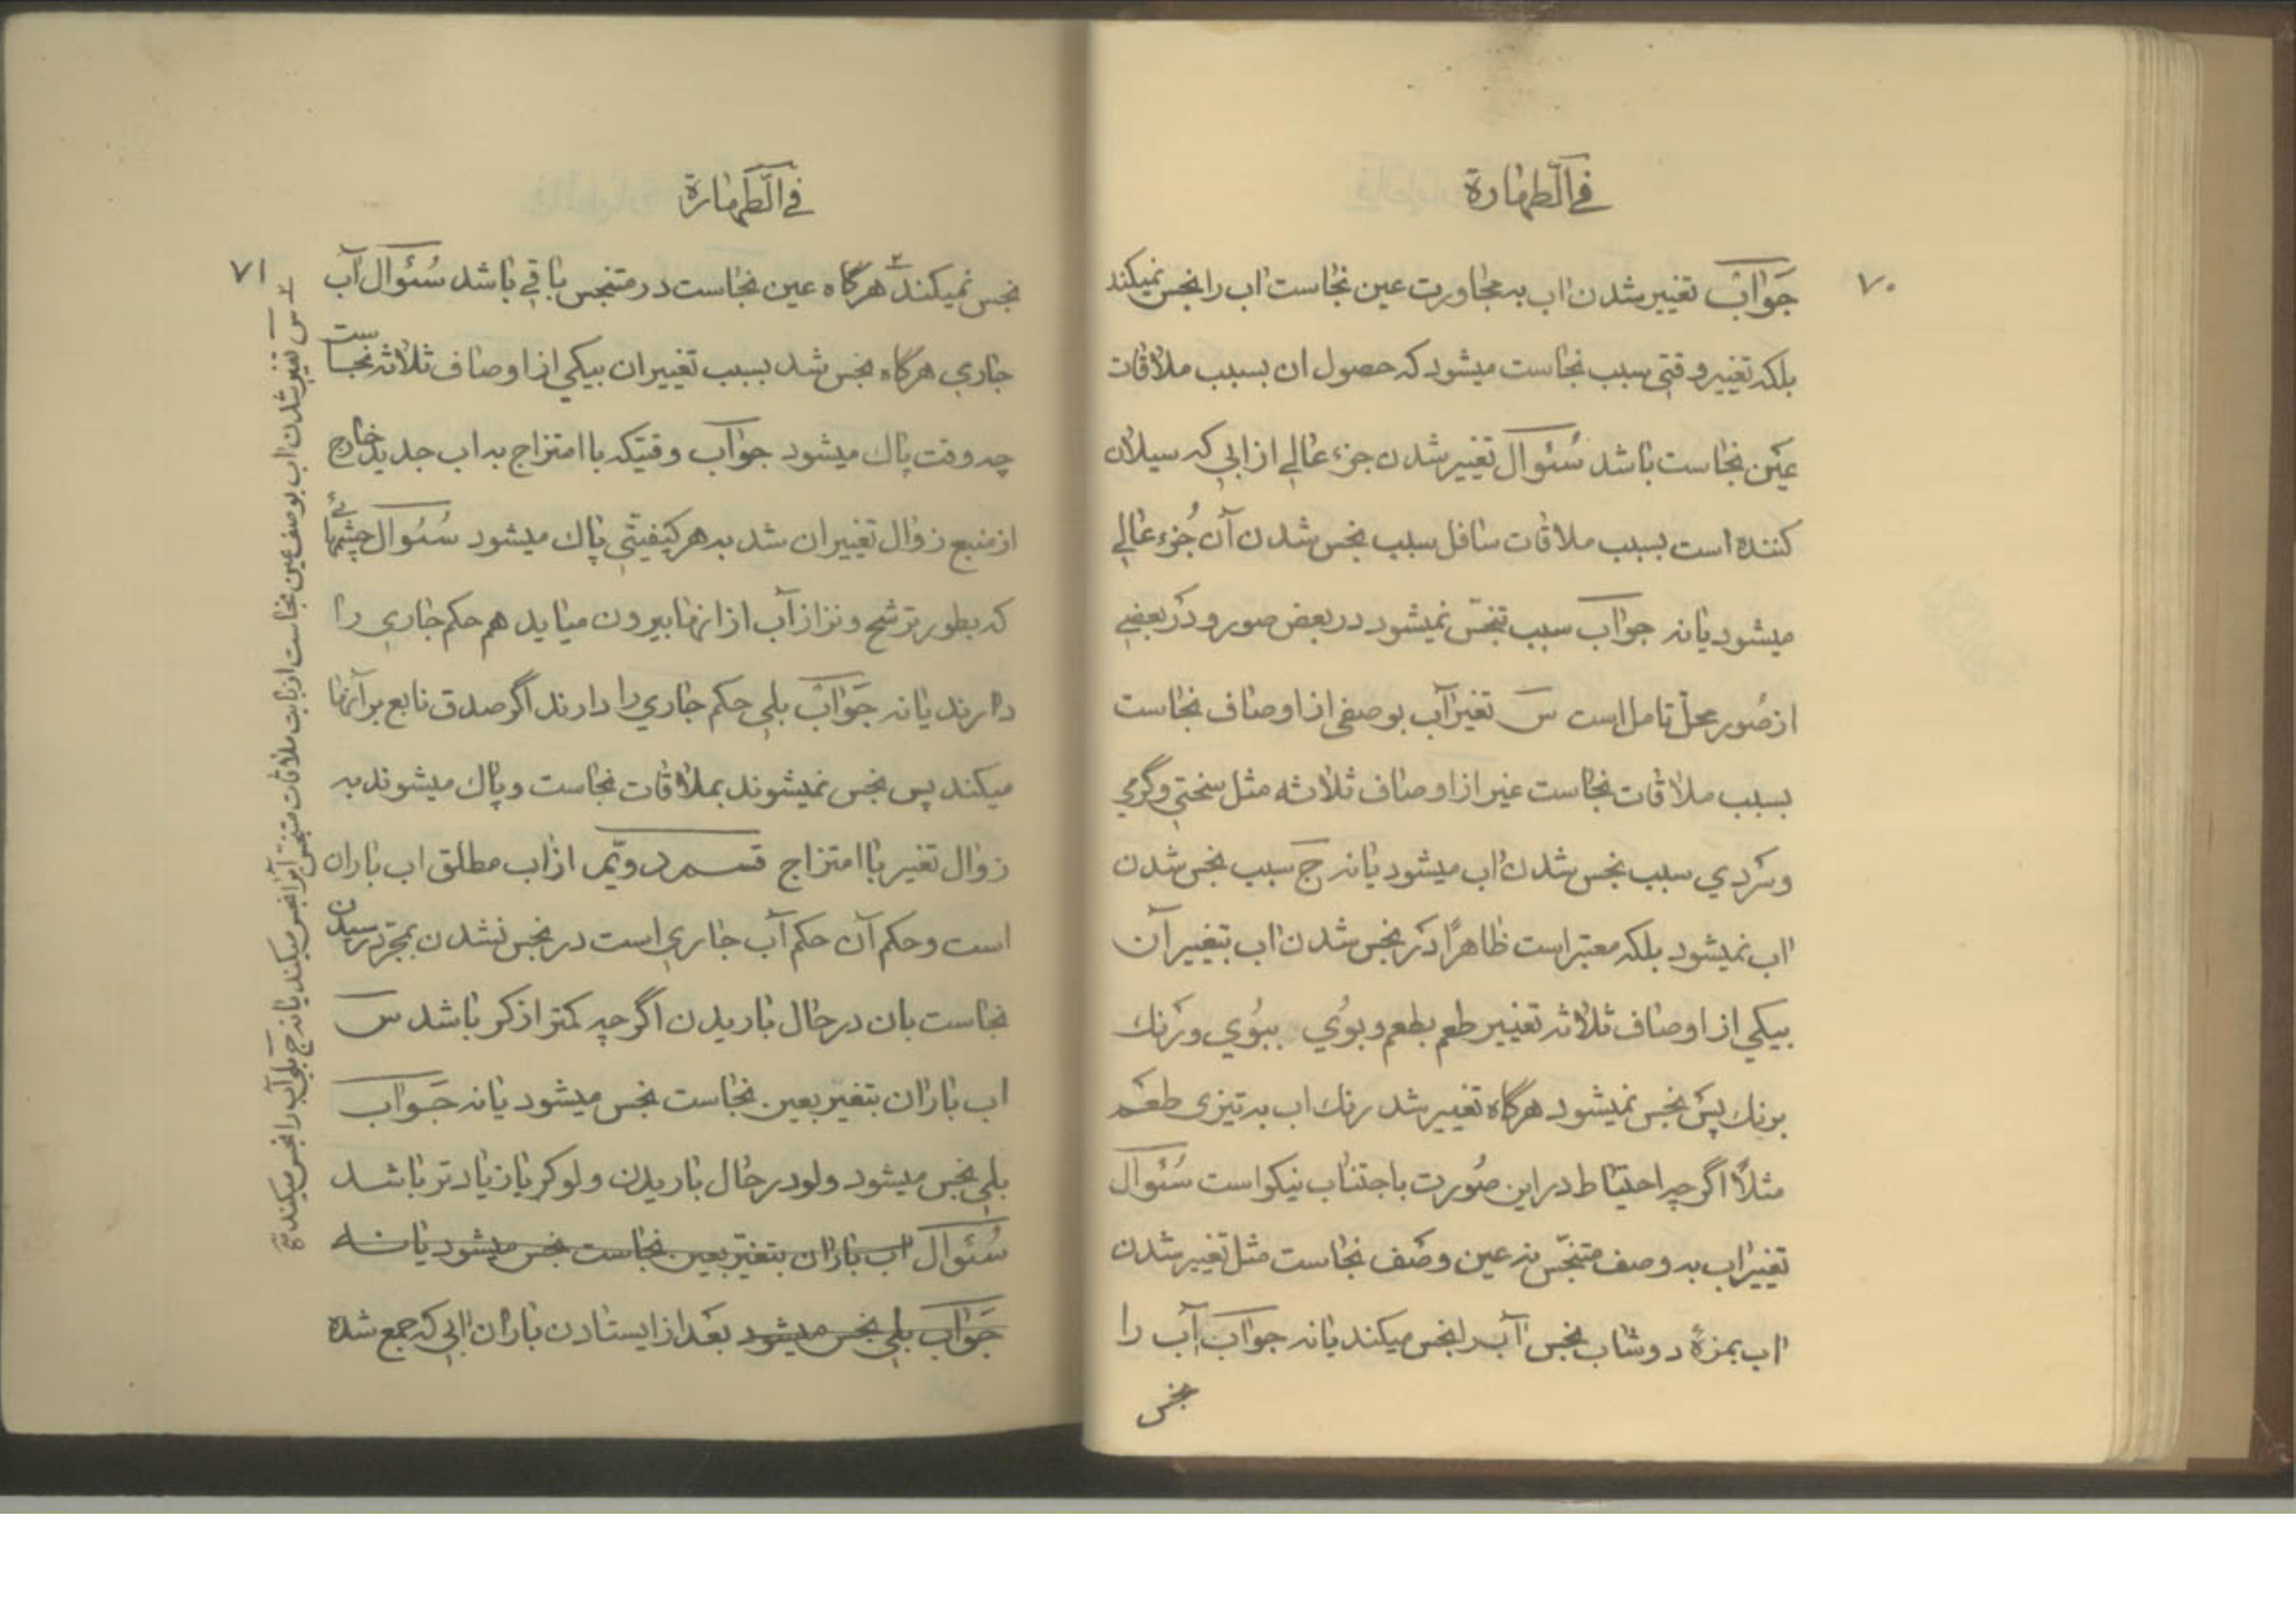 في الطهارة
۷۰
جواب تغییر شدن اب به مجاورت عین نجاست اب را نجس نمیکند
بلکه تغییر وقتی سبب نجاست میشود که حصول ان بسبب ملاقات
عین نجاست باشد سئوال تغییر شدن جزء عالی از ابی که سیلان
کننده است بسبب ملاقات سافل سبب نجس شدن آن جزء عالی
میشود یا نه جواب سبب تنجس نمیشود در بعض صور و در بعضی
از صور محل تامل است س تغیر آب بوصفی از اوصاف نجاست
بسبب ملاقات نجاست غیر از اوصاف ثلاثه مثل سختی و گرمی
و سردی سبب نجس شدن اب میشود یا نه ج سبب نجس شدن
اب نمیشود بلکه معتبر است ظاهرًا در نجس شدن اب بتغییر آن
بیکی از اوصاف ثلاثه تغییر طعم بطعم و بوی ببوی و رنك
برنك پس نجس نمیشود هرگاه تغییر شد رنك اب به تیزی طعم
مثلاً اگر چه احتیاط در این صورت باجتناب نیکو است سئوال
تغییر اب به وصف متنجس نه عین وصف نجاست مثل تغییر شدن
اب بمزهٔ دوشاب نجس آب را نجس میکند یا نه جواب آب را
نجس
في الطهارة
۷۱
نجس نمیکند ۲ هرگاه عین نجاست در متنجس باقی باشد سئوال آب
جاری هرگاه نجس شد بسبب تغییر ان بیکی از اوصاف ثلاثه نجاست
چه وقت پاك میشود جواب وقتیکه با امتزاج به اب جدید خارج
از منبع زوال تغییر ان شد به هر کیفیتی پاك میشود سئوال چشمهائی
که بطور ترشح و نزاز آب از انها بیرون میاید هم حکم جاری را
دارند یا نه جواب بلی حکم جاری را دارند اگر صدق نابع بر آنها
میکند پس نجس نمیشوند بملاقات نجاست و پاك میشوند به
زوال تغیر با امتزاج قسم دویم از اب مطلق اب باران
است و حکم آن حکم آب جاری است در نجس نشدن بمجرد رسیدن
نجاست بان در حال باریدن اگر چه کمتر از کر باشد س
اب باران بتغیر بعین نجاست نجس میشود یا نه جواب
بلی نجس میشود ولو در حال باریدن ولو کر یا زیادتر باشد
سئوال اب باران بتغیر بعین نجاست نجس میشود یا نه
جواب بلی نجس میشود بعد از ایستادن باران ابی که جمع شده
۲ س تغییر شدن اب بوصف عین نجاست از بابت ملاقات متنجس آبرا نجس میکند یا نه ج بلی آب را نجس میکند